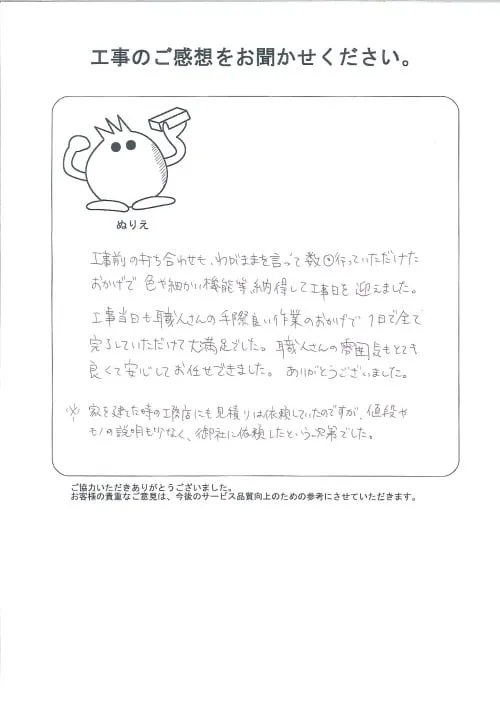 工事のご感想をお聞かせください。
ぬりえ
工事前の打ち合わせも、わがままを言って数回行っていただけた
おかげで色や細かい機能等納得して工事日を迎えました。
工事当日も職人さんの手際良い作業のおかげで1日で全て
完了していただけて大満足でした。職人さんの雰囲気もとても
良くて安心してお任せできました。ありがとうございました。
※ 家を建てた時の工務店にも見積りは依頼していたのですが、値段や
モノの説明も少なく、御社に依頼したという次第でした。
ご協力いただきありがとうございました。
お客様の貴重なご意見は、今後のサービス品質向上のための参考にさせていただきます。